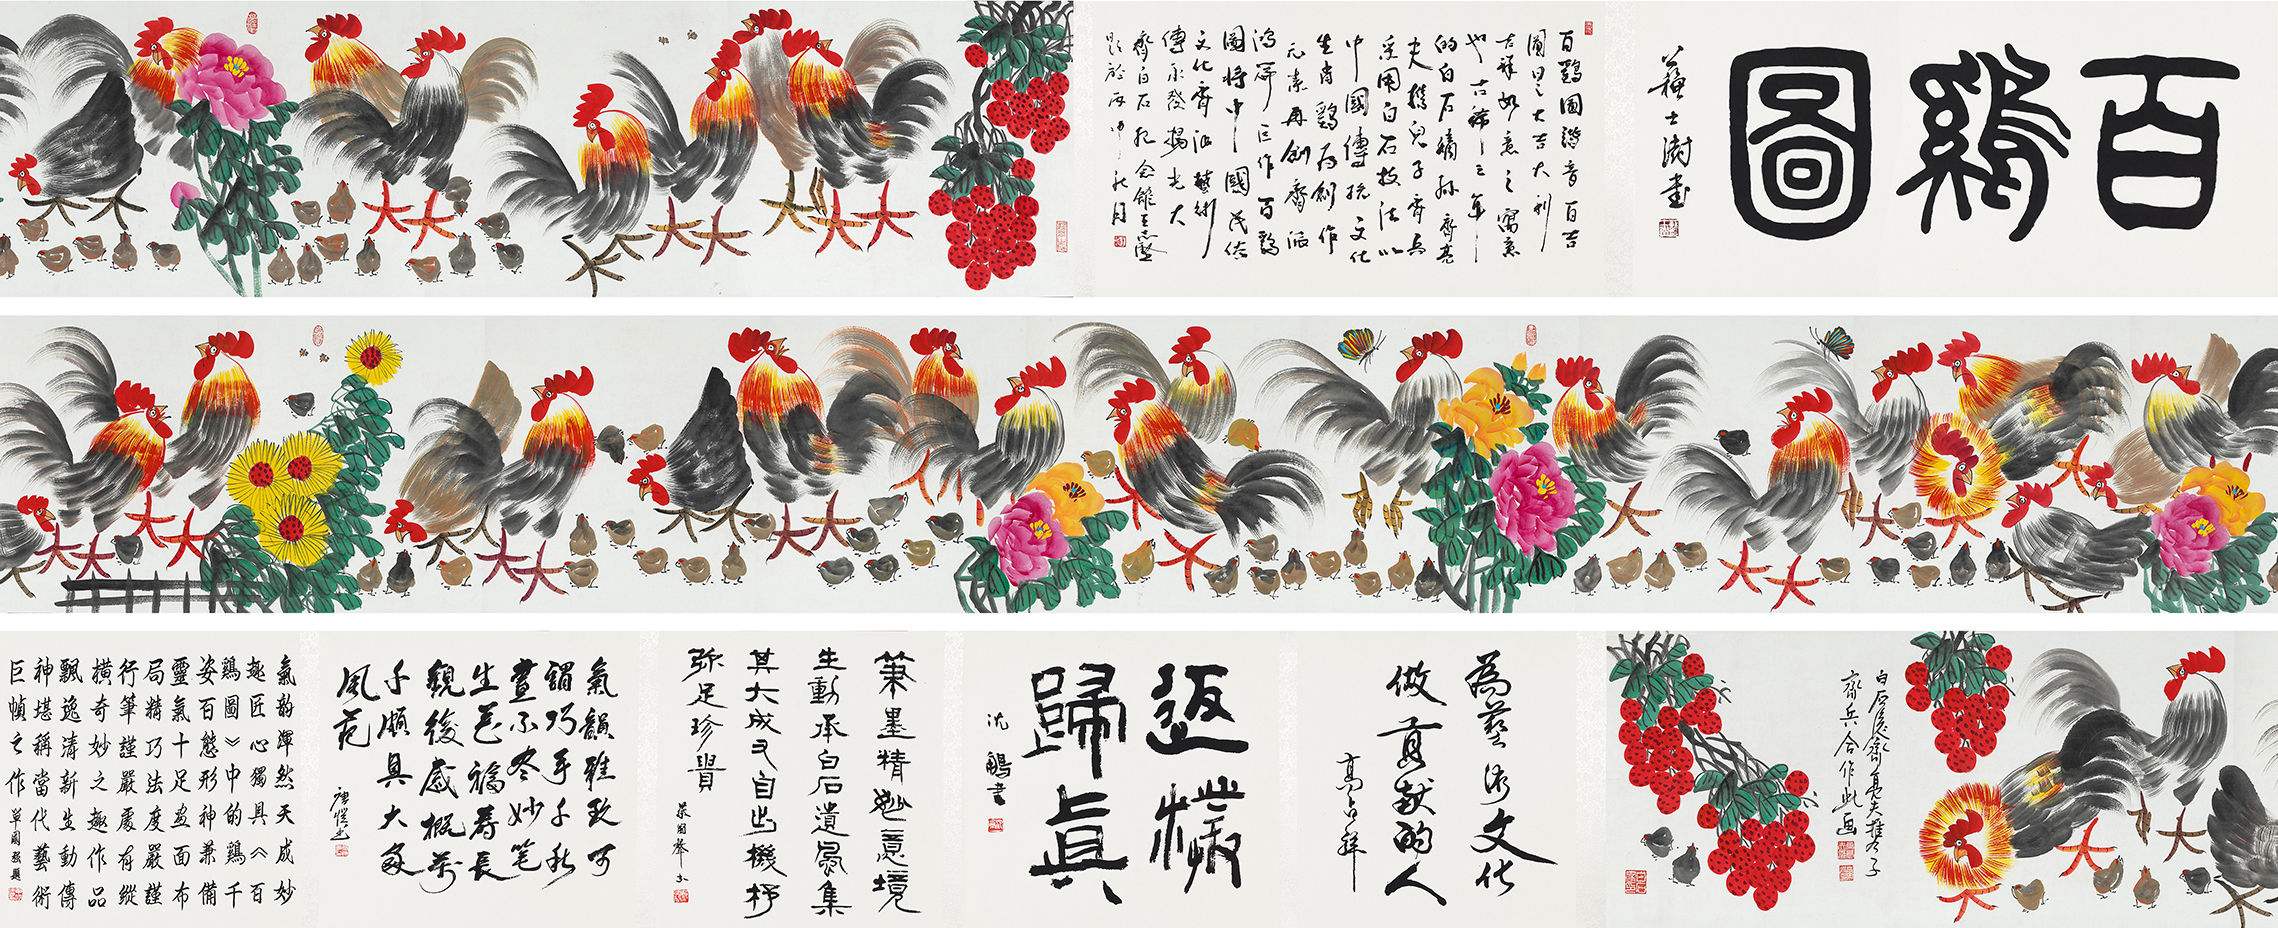 百鷄圖
蘇士澍書
百鷄圖諧音百吉
圖曰之大吉大利
吉祥如意之寓意
也古稀之年
的白石嫡孫齊亮
夫携兒子齊兵
采用白石技法以
中國傳統文化
生肖鷄爲創作
元素再創齊派
鴻篇巨作百鷄
圖將中國民俗
文化齊派藝術
傳承發揚光大
齊白石
題於丙申秋月
白石後裔齊亮夫携子
齊兵合作此画
為藝術文化
做貢獻的人
高占祥
返樸
歸真
沈鵬書
筆墨精妙意境
生動承白石遺風集
其大成又自出機杼
弥足珍貴
氣韻雅致可
謂巧手千秋
畫不妙笔
生花福壽長
觀後感概萬
千頗具大家
風范
氣韵渾然天成妙
趣匠心獨具《百
鷄圖》中的鷄千
姿百態形神兼備
靈氣十足画面布
局精巧法度嚴謹
行筆謹嚴處有縱
橫奇妙之趣作品
飄逸清新生動傳
神堪稱當代藝術
巨幀之作
單國強題